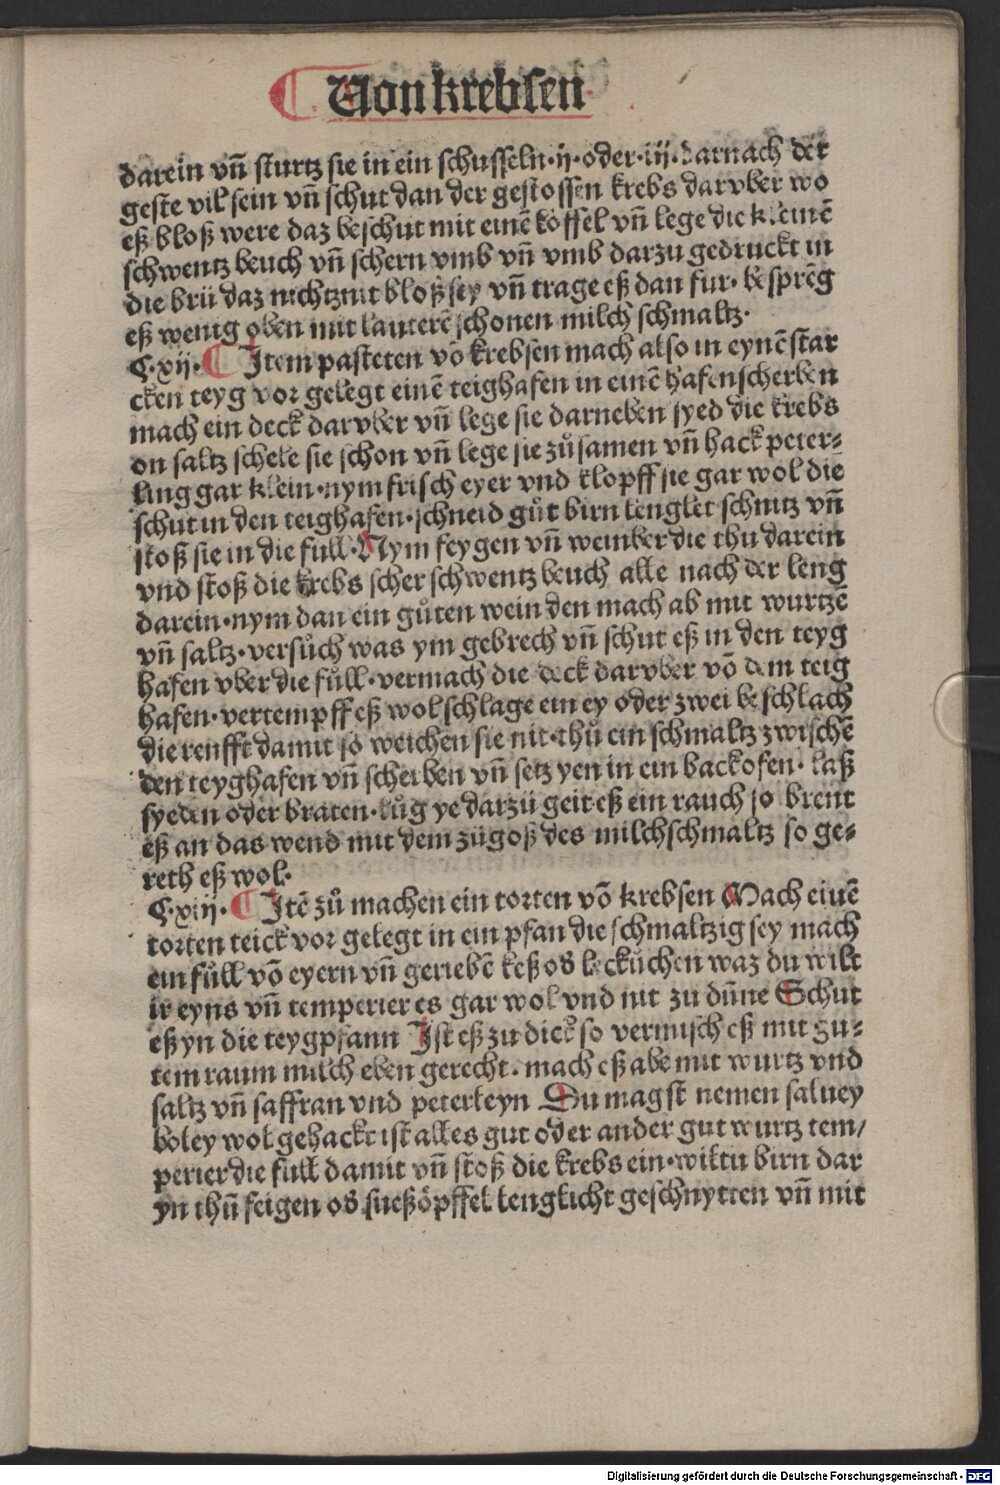 Von krebsen
darein vñ sturtz sie in ein schusseln·ij·oder·iij·darnach der
geste vil sein vñ schut dan der gestossen krebs darvber wo
eß bloß were daz beschut mit einē loffel vñ lege die kleinē
schwentz beuch vñ schern vmb vñ vmb darzu gedruckt in
die brü daz nichtznit bloß sey vñ trage eß dan fur· besprēg
eß wenig oben mit lauterē schonen milch schmaltz·
¶·xij· Item pasteten vō krebsen mach also in eynē star
cken teyg vor gelegt einē teighafen in einē hafenscherben
mach ein deck darvber vñ lege sie darneben syed die krebs
on saltz schele sie schon vñ lege sie zůsamen vñ hack peter⸗
ling gar klein·nym frisch eyer vnd klopff sie gar wol die
schut in den teighafen·schneid gůt birn lenglet schnitz vñ
stoß sie in die full·Nym feygen vñ weinber die thu darein
vnd stoß die krebs scher schwentz beuch alle nach der leng
darein·nym dan ein gůten wein den mach ab mit wurtzē
vñ saltz·versůch was ym gebrech vñ schut eß in den teyg
hafen vber die fůll·vermach die deck darvber vō dem teig
hafen·vertempff eß wol schlage ein ey oder zwei beschlach
die renfft damit so weichen sie nit·thů ein schmaltz zwischē
den teyghafen vñ scherben vñ setz yen in ein backofen· laß
syeden oder braten·lůg ye darzů geit eß ein rauch so brent
eß an das wend mit dem zůgoß des milchschmaltz so ge⸗
reth eß wol·
¶·xiij· Itē zů machen ein torten vō krebsen Mach einē
torten teick vor gelegt in ein pfan die schmaltzig sey mach
ein füll vō eyern vñ geriebē keß od leckůchen waz du wilt
ir eyns vñ temperier es gar wol vnd nit zu důnne Schut
eß yn die teygpfann Ist eß zu dick so vermisch eß mit gu⸗
tem raum milch eben gerecht· mach eß abe mit wurtz vnd
saltz vñ saffran vnd peterleyn Du magst nemen saluey
boley wol gehackt ist alles gut oder ander gut wurtz tem/
perier die full damit vñ stoß die krebs ein·wiltu birn dar
yn thů feigen od sueßöpffel lenglicht geschnytten vñ mit
Digitalisierung gefördert durch die Deutsche Forschungsgemeinschaft - DFG